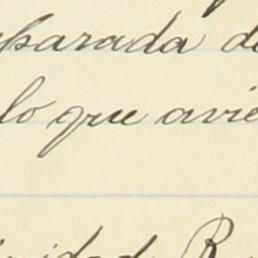 parada de
lo que avie
nidad R